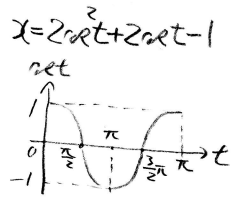 x=2cos²t+2cost-1
cost
1
π
0 π/2 3/2π π t
-1